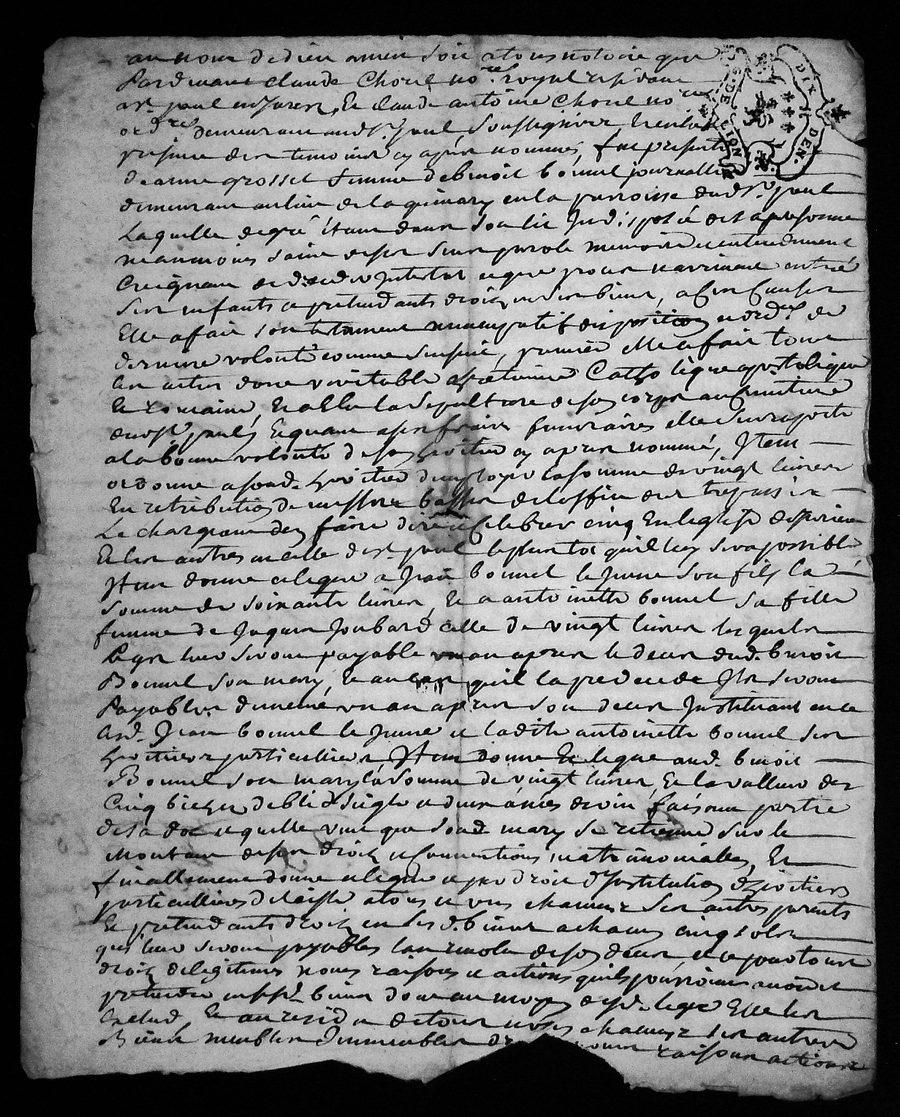 au nom de dieu amen soit a tous notoire que
Pardevant claude Chorel no.re royal residant
a st paul en Jarest, Et claude antoine Chorel no.re
ord.re demeurant aud st paul soussignez En la
presence des temoins cy apres nommes, fut presente
Jeanne grosset femme de benoit bonnel journallier
demeurant au lieu de la in la parroisse dud st paul
Laquelle de gré étant dans son lit Indisposée de sa personne
neanmoins saine de ses sens parole memoire et entendement
Craignant de deceder intestat et que proces n'arrivent entre
ses enfants et pretendants droits en ses biens, a Ces Causes
Elle a fait son testament nuncupatif disposition et ord.ce de
derniere volonté comme s'ensuit, premier elle a fait tous
les actes d'une veritable chretienne Catholique apostolique
Et Romaine, Et a Elu la sepulture de son corps au Cimetiere
dud st paul, Et quant a ses fraix funeraires elle s'en raporte
a la bonne volonté de son heritier cy apres nommé, Item
ordonne a sond. heritier d'employer la somme de vingt livres
En retribution de messes basses de l'office des trespassés
Le chargeant den faire dire et Celebrer cinq En leglise
Et les autres en celle de st paul le plus tot quil luy sera possible
Item donne et legue a Jean bonnel le Jeune son fils la
somme de soixante livres, Et a antoinette bonnel sa fille
femme de Jaques Joubard celle de vingt livres lesquels
legs leur seront payable un an apres le deces dud. benoit
Bonnel son mary, Et au cas quil la predecede Ils seront
Payables de meme un an apres son deces Instituant en ce
lesd. Jean bonnel le Jeune et ladite antoinette bonnel ses
heritiers particulliers Item donne Et legue aud. benoit
Bonnel son mary la somme de vingt livres, Et la valleur de
Cinq bichets de bled seigle et deux anées de vin faisant partie
de sa dot et quelle veut que sond mary se retienne sur le
Montant de ses droits et Conventions matrimoniales, Et
finallement donne et legue et par droit d'Institution d'heritiers
particulliers delaisse a tous et uns chacuns ses autres parents
Et pretendants droits en sesd. biens a chacun cinq sols
qui leur seront payables lan revolu de son deces et ce pour tous
droits de legitimes noms raisons et actions quils pourroient avoir et
pretendre en sesd. biens dont au moyen dud. legs Elle les
Exclud, Et au residu de tous uns chacuns ses autres
Biens meubles Immeubles raisons actions
G. DE LION
DIX DEN.